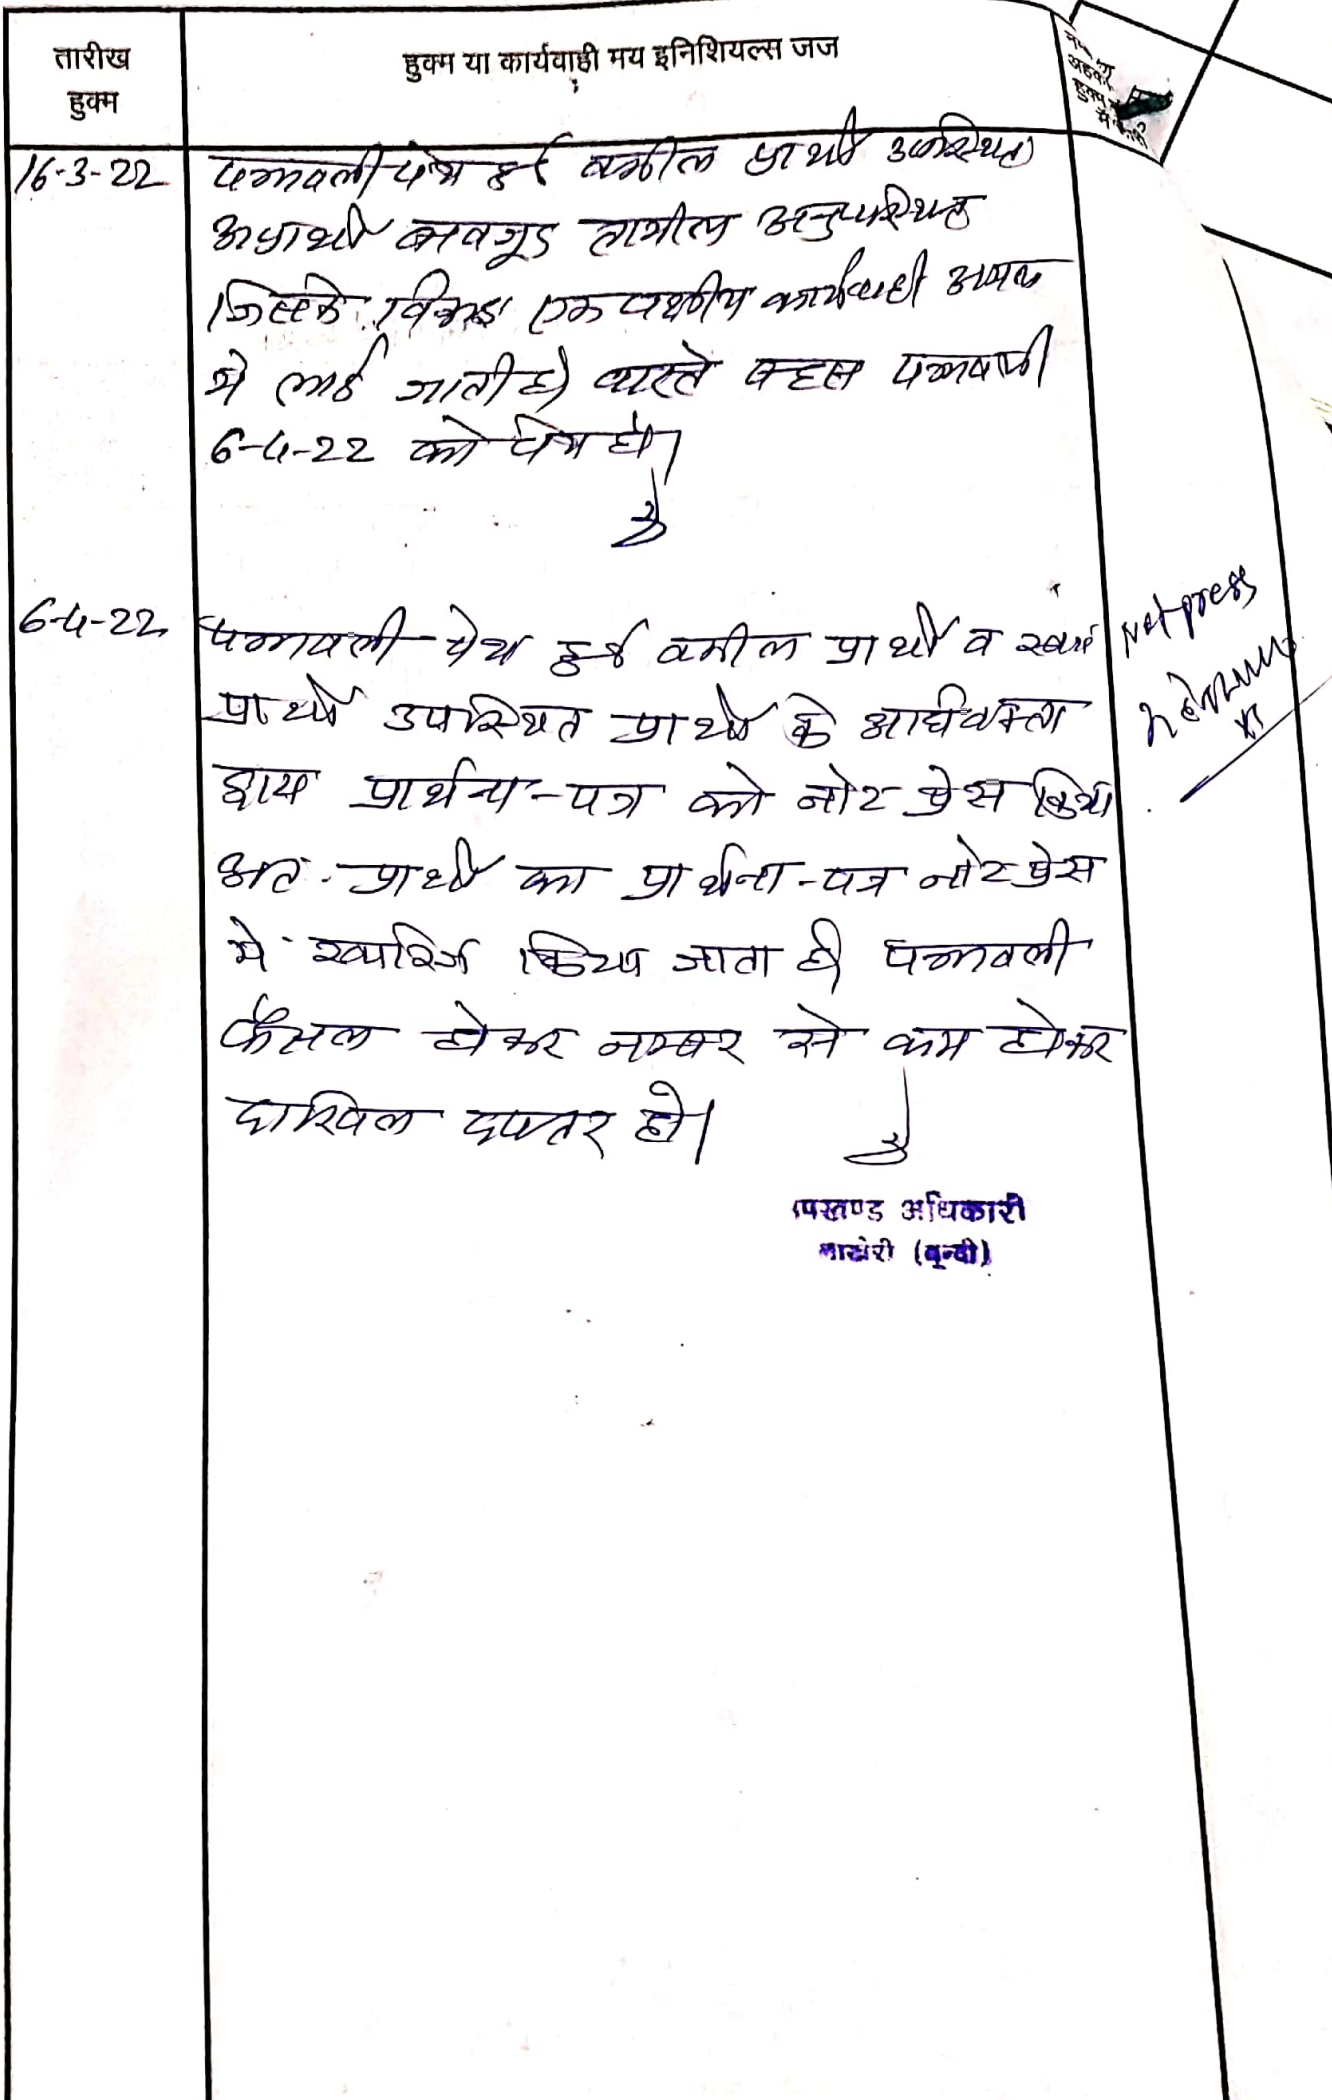 तारीख
हुक्म
हुक्म या कार्यवाही मय इनिशियल्स जज
16-3-22
पत्रावली पेश हुई वकील प्रार्थी उपस्थित
अप्रार्थी बावजूद तामील अनुपस्थित
जिसके विरूद्ध एक पक्षीय कार्यवाही अमल
मे लाई जाती है। वास्ते बहस पत्रावली
6-4-22 को पेश हो।
6-4-22
पत्रावली पेश हुई वकील प्रार्थी व स्वयं
प्रार्थी उपस्थित प्रार्थी के अधिवक्ता
द्वारा प्रार्थना-पत्र को नोट प्रेस किया
अतः प्रार्थी का प्रार्थना-पत्र नोट प्रेस
मे खारिज किया जाता है। पत्रावली
फैसल होकर नम्बर से कम होकर
दाखिल दफ्तर हो।
Not press
उपखण्ड अधिकारी
लाखेरी (बून्दी)